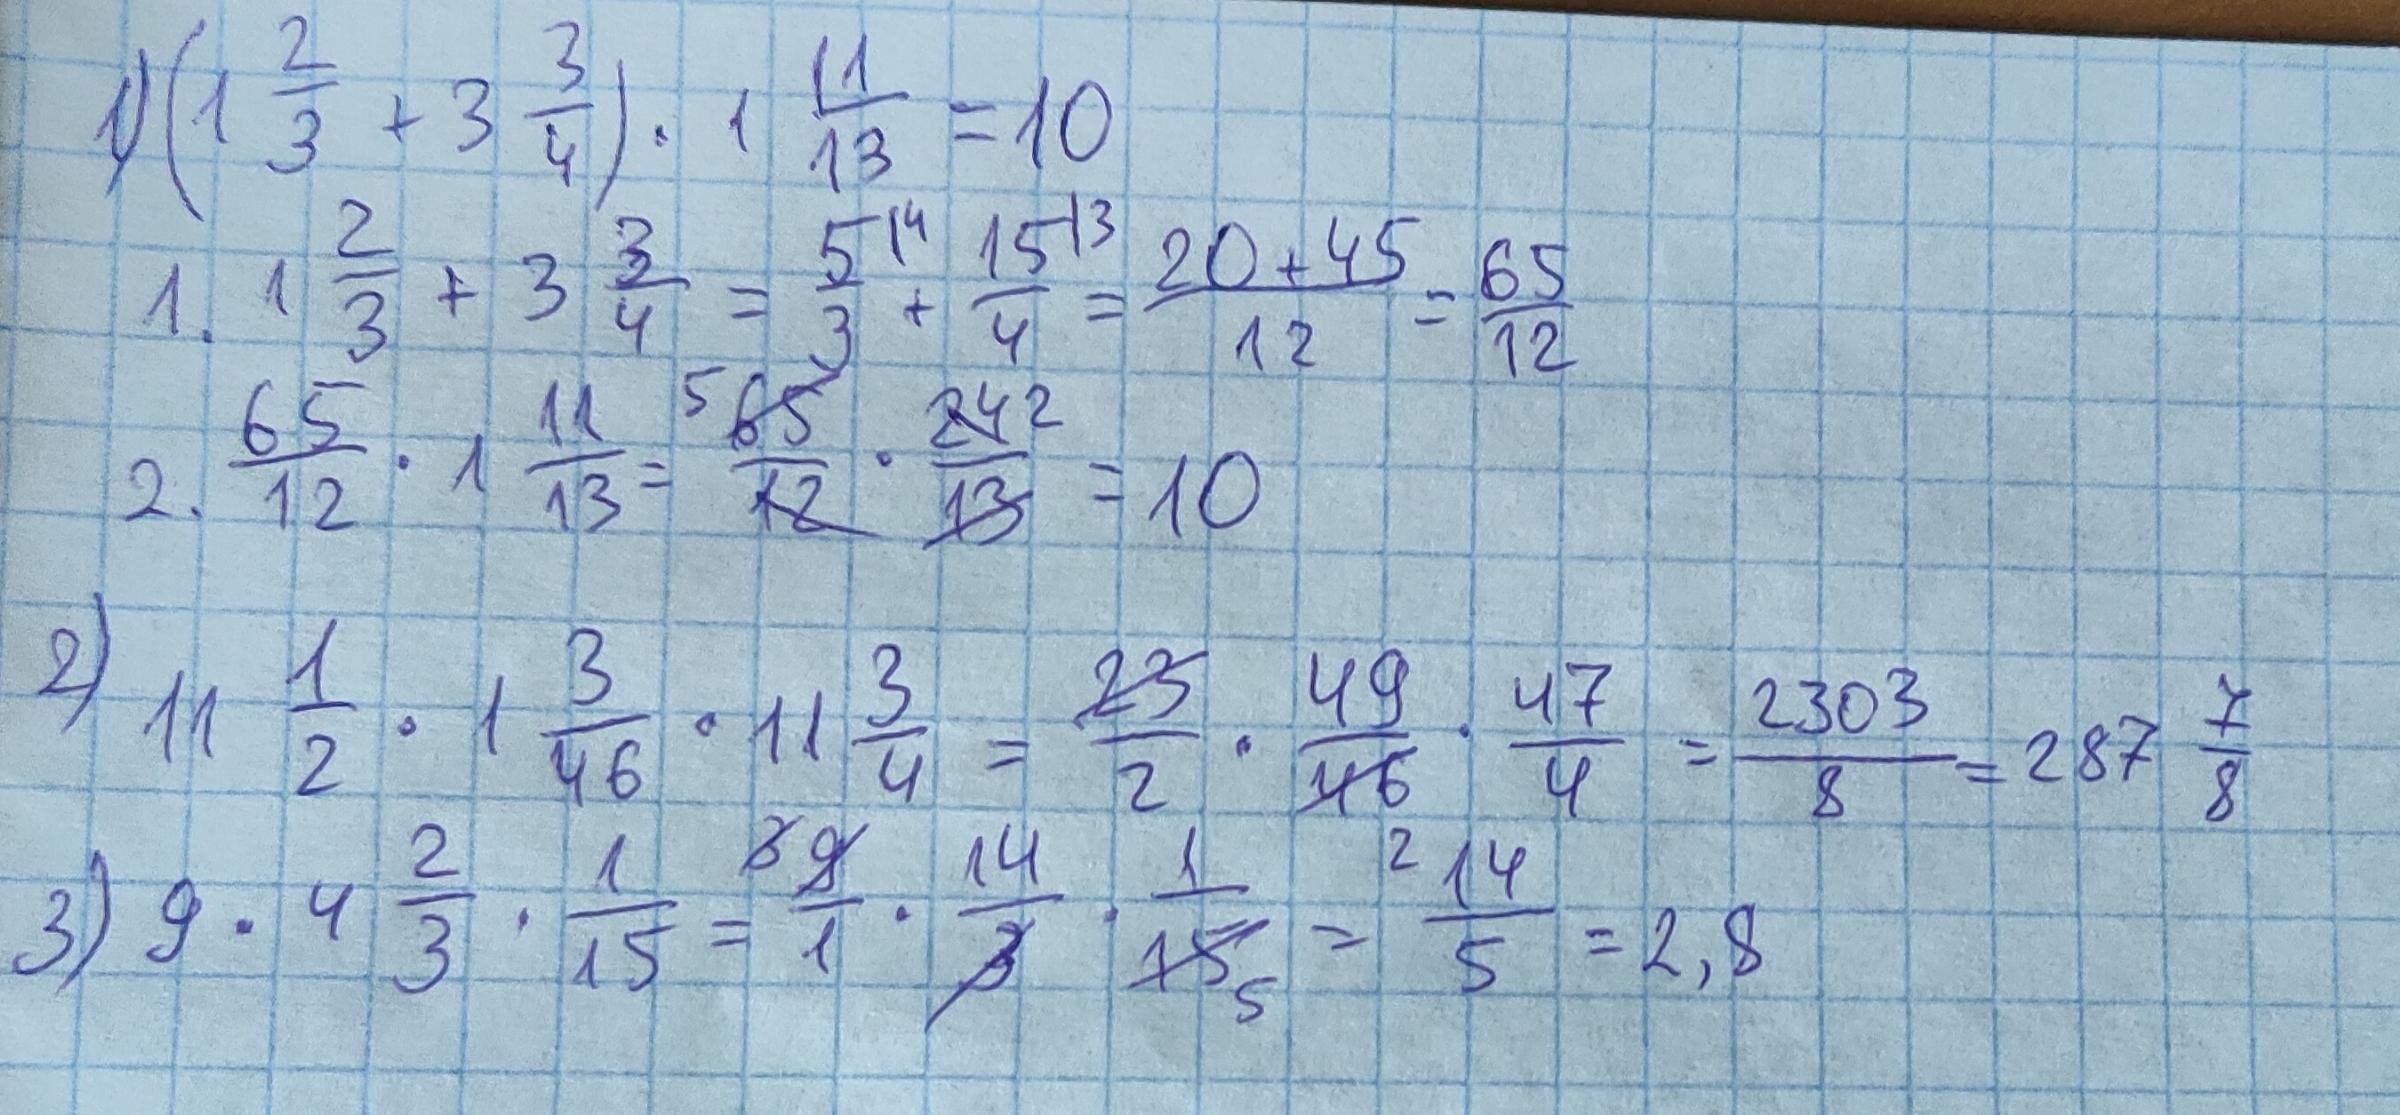 1) (1 2/3 + 3 3/4) · 1 11/13 = 10
1. 1 2/3 + 3 3/4 = 5|4/3 + 15|3/4 = 20+45/12 = 65/12
2. 65/12 · 1 11/13 = 5 65/12 · 24 2/13 = 10
2) 11 1/2 · 1 3/46 · 11 3/4 = 23/2 · 49/46 · 47/4 = 2303/8 = 287 7/8
3) 9 · 4 2/3 · 1/15 = 3 9/1 · 14/3 · 1/15 5 = 2 14/5 = 2,8